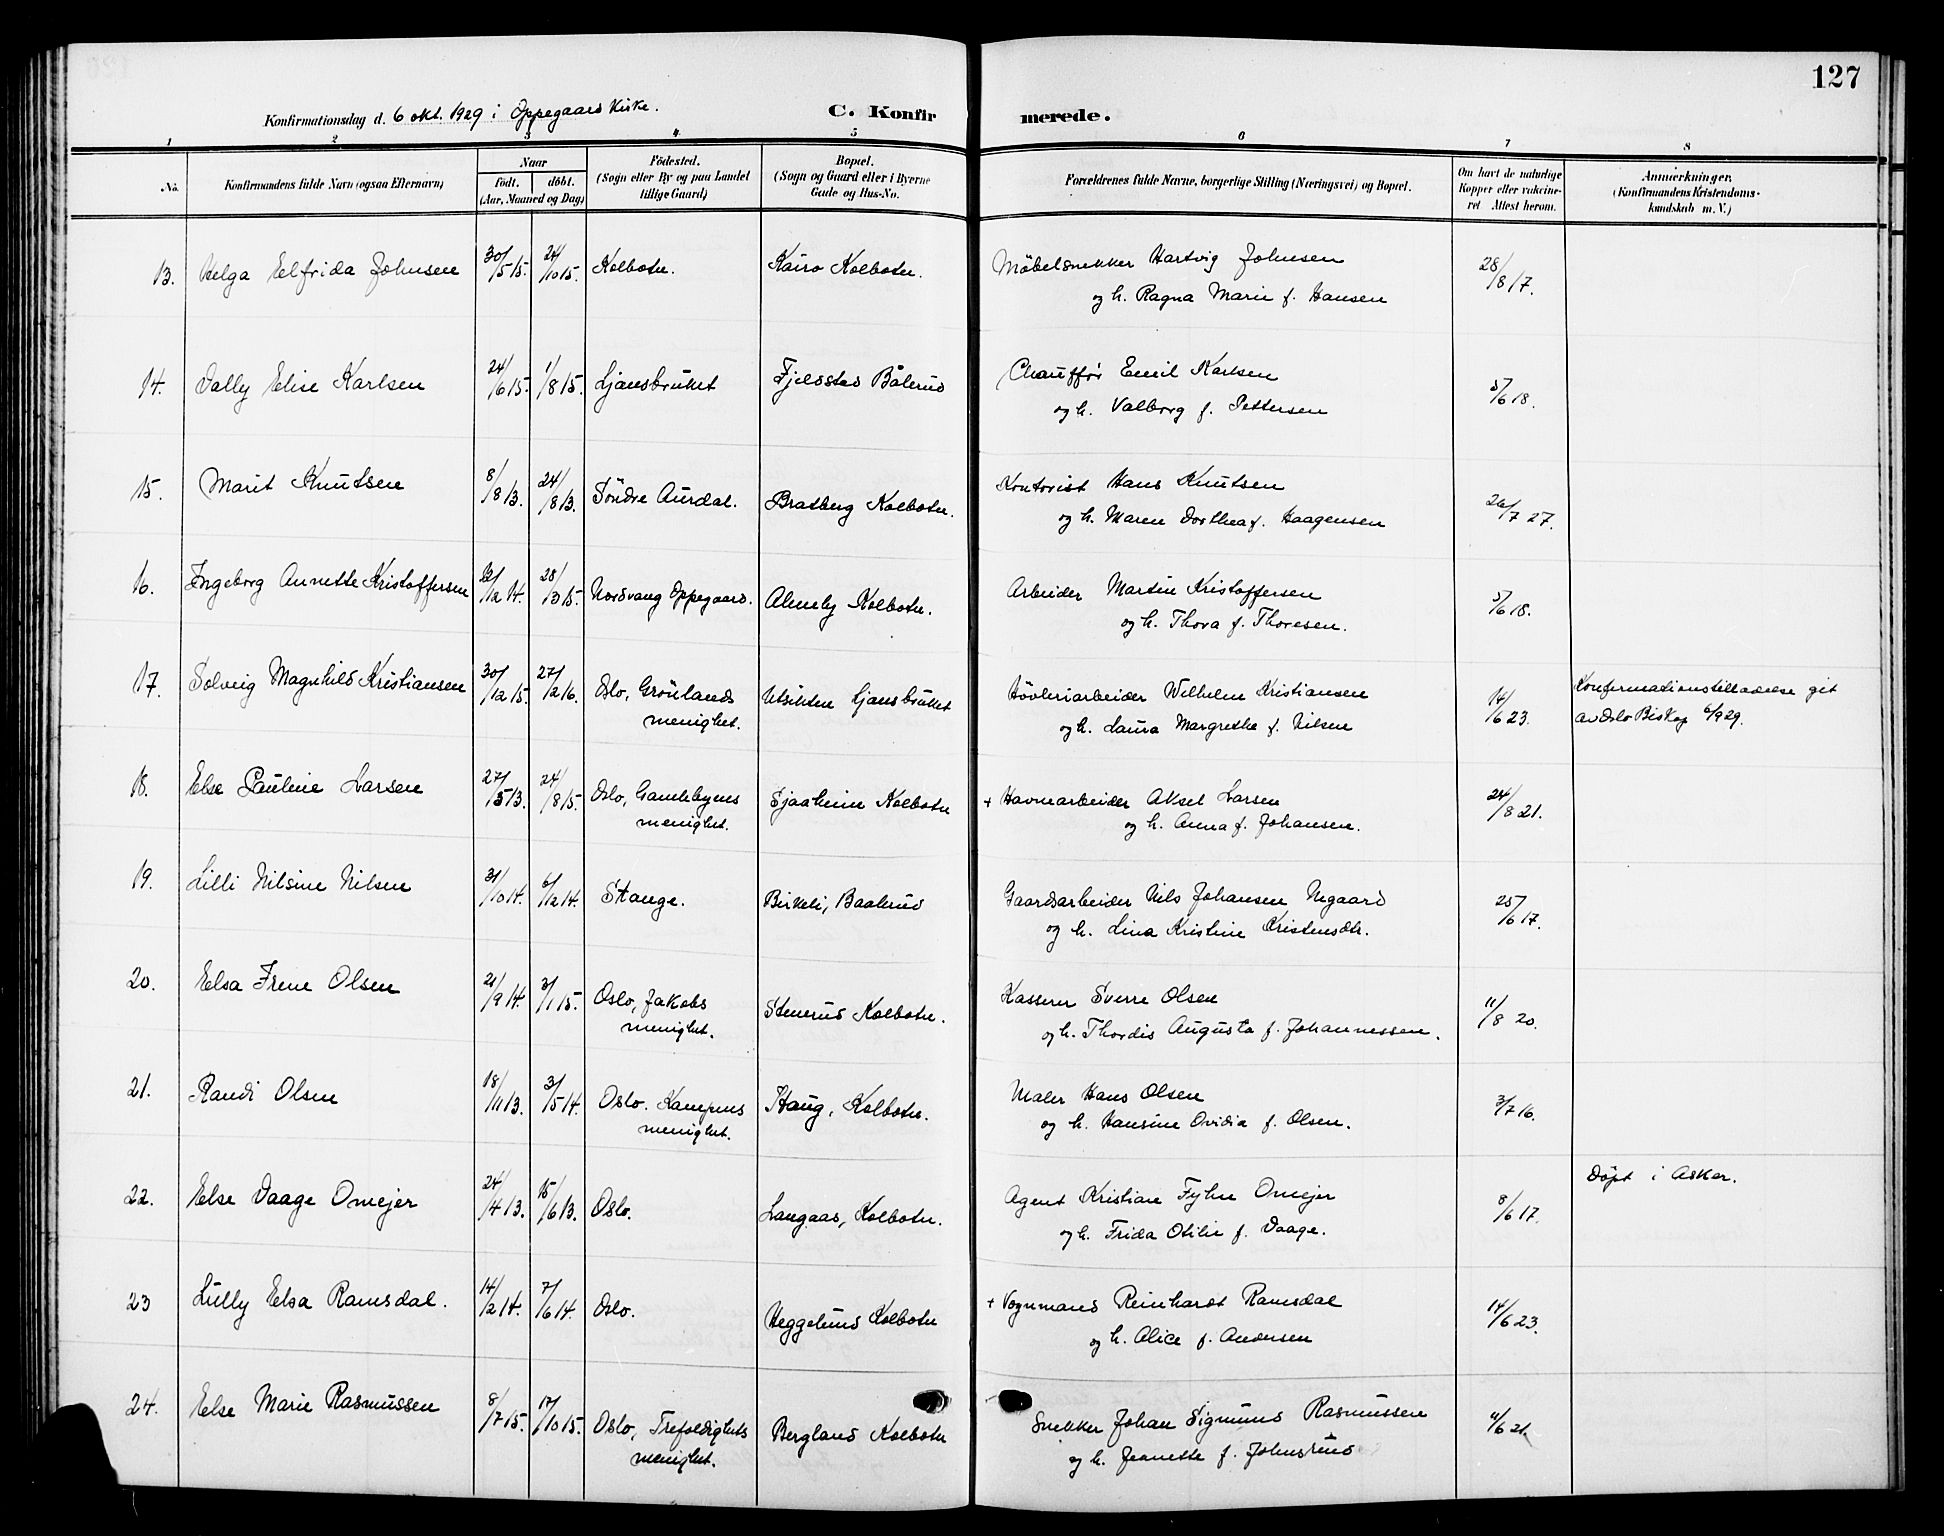 127
Konfirmationsdag d. 6 okt. 1929 i Oppegaard Kirke.
C. Konfirmerede.
1 2 3 4 5 6 7 8
No.
Konfirmandens fulde Navn (ogsaa Efternavn)
Naar
født. døbt.
(Aar, Maaned og Dag)
Fødested.
(Sogn eller By og paa Landet
tillige Gaard)
Bopæl.
(Sogn og Gaard eller i Byerne
Gade og Hus-No.
Forældrenes fulde Navne, borgerlige Stilling (Næringsvei) og Bopæl.
Om havt de naturlige
Kopper eller vakcine-
ret Attest herom.
Anmerkninger,
(Konfirmandens Kristendoms-
kundskab m. V.)
13. Helga Elfrida Johnsen 30/5 15. 24/10 15. Kolbotn. Kairo Kolbotn. Möbelsnekker Hartvig Johnsen 28/8 17.
og h. Ragna Marie f. Hansen
14. Dally Elise Karlsen 24/6 15. 1/8 15. Ljansbruket Fjeldstad Bålerud Chauffør Emil Karlsen 5/6 18.
og h. Valborg f. Pettersen
15. Marit Knutsen 8/8 13. 24/8 13. Söndre Aurdal. Bratberg Kolbotn. Kontorist Hans Knutsen 26/7 27.
og h. Maren Dorthea f. Haagensen
16. Ingeborg Annette Kristoffersen 12/12 14. 28/3 15. Nordvang Oppegaard. Almely Kolbotn. Arbeider Martin Kristoffersen 5/6 18.
og h. Thora f. Thoresen.
17. Solveig Magnhild Kristiansen 30/12 15. 27/2 16. Oslo, Grönlands Utsikten Ljansbruket Hövleriarbeider Wilhelm Kristiansen 14/6 23. Konfirmationstilladelse git
menighet. og h. Laura Margrethe f. Nilsen av Oslo Biskop 6/9 29.
18. Else Pauline Larsen 27/5 13. 24/8 15. Oslo, Gamlebyens Sjaaheim Kolbotn + Havnearbeider Aksel Larsen 24/8 21.
menighet. og h. Anna f. Johansen.
19. Lilli Nilsine Nilsen 31/10 14. 6/12 14. Stange. Birkeli, Baalerud Gaardsarbeider Nils Johansen Negaard 25/6 17.
og h. Lina Kristine Kristensdtr.
20. Elsa Irene Olsen 21/9 14. 3/1 15. Oslo, Jakobs Stenerud Kolbotn. Kasserer Sverre Olsen 11/8 20.
menighet. og h. Thordis Augusta f. Johannessen.
21. Randi Olsen 18/11 13. 3/5 14. Oslo. Kampens Haug, Kolbotn. Maler Hans Olsen 3/7 16.
menighet. og h. Hansine Ovidia f. Olsen.
22. Else Daage Omejer 24/4 13. 15/6 13. Oslo. Langaas, Kolbotn. Agent Kristian Fyhn Omejer 8/6 17. Döpt i Asker.
og h. Frida Otilie f. Daage.
23 Lully Elsa Ramsdal. 14/2 14. 7/6 14. Oslo. Heggelund Kolbotn + Vognmand Reinhardt Ramsdal 14/6 23.
og h. Alice f. Andersen
24. Else Marie Rasmussen 8/7 15. 17/10 15. Oslo, Trefoldighets Bergland Kolbotn Snekker Johan Sigmund Rasmussen 4/6 21.
menighet. og h. Jeanette f. Johnsrud